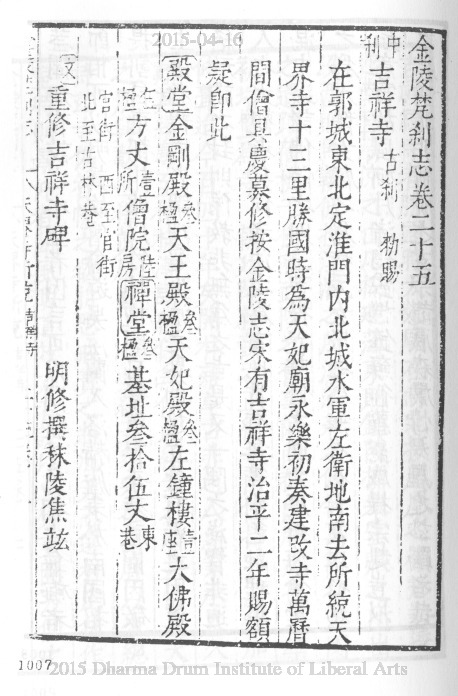 2015-04-16
金陵梵剎志卷二十五
中剎
吉祥寺 古剎 勑賜
在郭城東北定淮門內北城水軍左衛地南去所統天
界寺十三里勝國時為天妃廟永樂初奏建改寺萬曆
間僧具慶募修按金陵志宋有吉祥寺治平二年賜額
疑卽此
殿堂金剛殿叁楹天王殿叁楹天妃殿叁楹左鐘樓壹座大佛殿
伍楹方丈壹所僧院陸房禪堂叁楹基址叁拾伍丈東巷
官街 西至官街
北至古林菴
文 重修吉祥寺碑 明修撰秣陵焦竑
1007
2015 Dharma Drum Institute of Liberal Arts